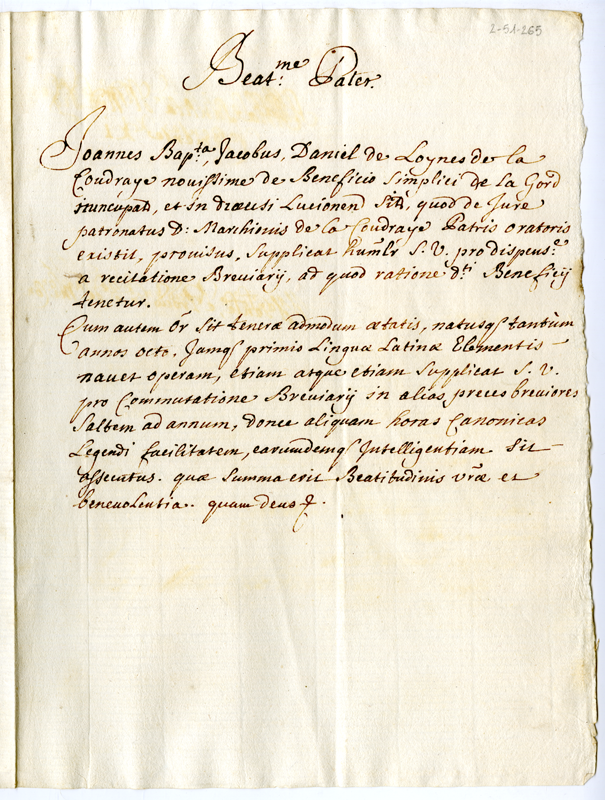 2-51-265
Beat.me Pater.
Joannes Bap.ta, Jacobus, Daniel de Loynes de la
Coudraye novissime de Beneficio simplici de la Gord
nuncupat, et in diœcesi Lucionen Sit, quod de Jure
patronatus D: Marchionis de la Coudraye Patris oratoris
existit, provisus, supplicat humlr S. V. pro dispens.e
a recitatione Breviarij, ad quod ratione d.ti Beneficij
tenetur.
Cum autem Or̃ sit teneræ admodum ætatis, natusq; tantum
annos octo. Jamq; primis Linguæ Latinæ Elementis -
navet operam, etiam atque etiam supplicat S. V.
pro Commutatione Breviarij in alias preces breviores
saltem ad annum, donec aliquam horas Canonicas
Legendi facilitatem, earumdemq; Intelligentiam sit -
assecutus. quæ summa erit Beatitudinis vr̃æ et
benevolentia. quam deus